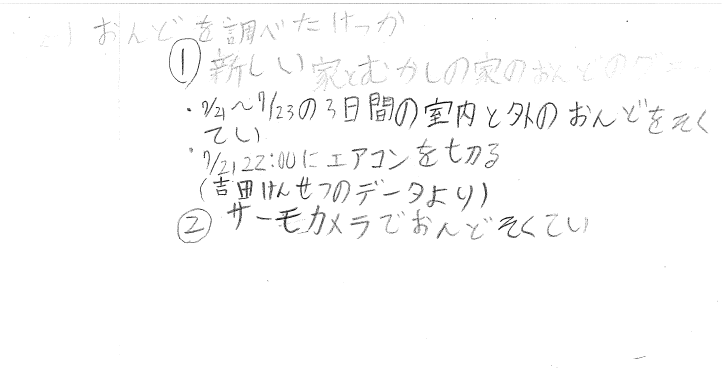 2) おんどを調べたけっか
① 新しい家とむかしの家のおんどのデータ
・7/21~7/23の3日間の室内と外のおんどをそく
てい
・7/21,22:00にエアコンを切る
(吉田けんせつのデータより)
② サーモカメラでおんどそくてい